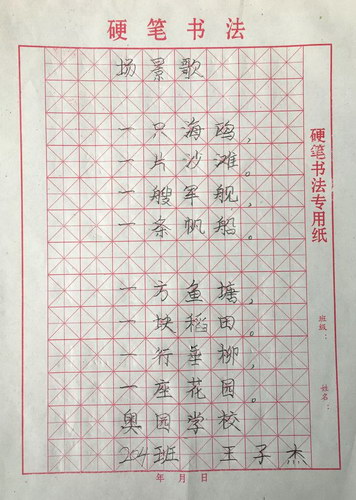 硬笔书法
场景歌
一只海鸥，
一片沙滩。
一艘军舰，
一条帆船。
一方鱼塘，
一块稻田。
一行垂柳，
一座花园。
奥园学校
204班 王子杰
年月日
硬笔书法专用纸
班级：
姓名：